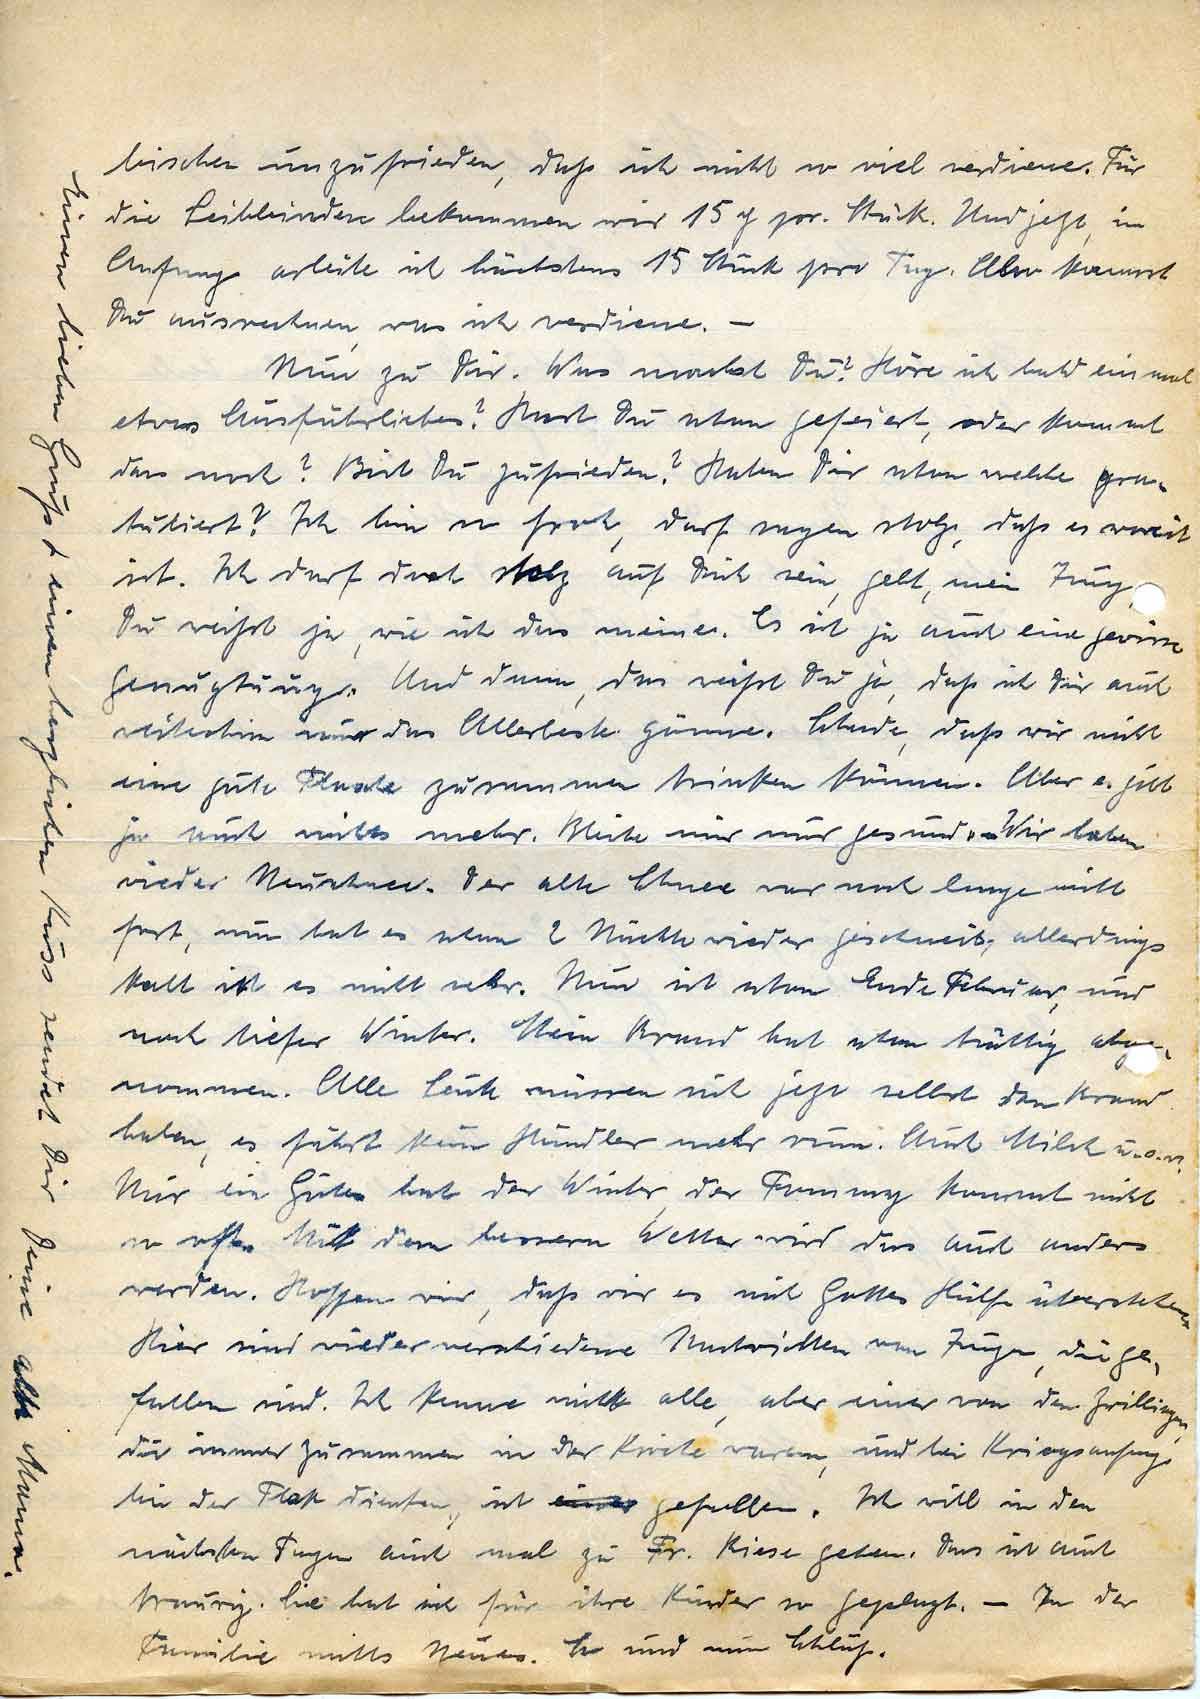 bischen unzufrieden, daß ich nicht so viel verdiene. Für
die Leibbinden bekommen wir 15 ₰ pr. Stück. Und jetzt, im
Anfang arbeite ich höchstens 15 Stück pro Tag. Also kannst
Du ausrechnen, was ich verdiene. –
Nun zu Dir. Was machst Du? Höre ich bald einmal
etwas Ausführliches? Hast Du schon gefeiert, oder kommt
das noch? Bist Du zufrieden? Haben Dir schon welche gra-
tuliert? Ich bin so froh, darf sagen stolz, daß es soweit
ist. Ich darf doch stolz auf Dich sein, gelt, mein Jung,
Du weißt ja, wie ich das meine. Es ist ja auch eine gewisse
Genugtuung. Und dann, das weißt Du ja, daß ich Dir auch
weiterhin nur das Allerbeste gönne. Schade, daß wir nicht
eine gute Flasche zusammen trinken können. Aber es gibt
ja auch nichts mehr. Bleibe mir nur gesund. – Wir haben
wieder Neuschnee. Der alte Schnee war noch lange nicht
fort, nun hat es schon 2 Nächte wieder geschneit, allerdings
kalt ist es nicht sehr. Nun ist schon Ende Februar, und
noch tiefer Winter. Mein Brand hat schon kräftig abge-
nommen. Alle Leute müssen sich jetzt selbst den Brand
holen, es fährt kein Händler mehr rum. Auch Milch u.s.w.
Nur ein Gutes hat der Winter, der Tommy kommt nicht
so oft. Mit dem bessern Wetter wird das auch anders
werden. Hoffen wir, daß wir es mit Gottes Hülfe überstehen
Hier sind wieder verschiedene Nachrichten von Jungen, die ge-
fallen sind. Ich kenne nicht alle, aber einer von den Zwillingen,
die immer zusammen in der Kirche waren, und bei Kriegsanfang
bei der Flak dienten, ist gefallen. Ich will in den
nächsten Tagen auch mal zu Fr. Kiese gehen. Das ist auch
traurig. Sie hat sich für ihre Kinder so geplagt. – In der
Familie nichts Neues. So und nun Schluß.
Einen lieben Gruß + einen herzlichen Kuss sendet Dir Deine alte Mama.